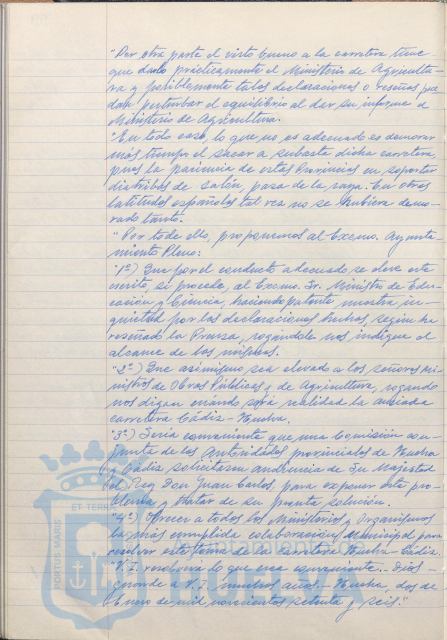 "Por otra parte el visto bueno a la carretera tiene
que darlo prácticamente el Ministerio de Agricultu-
ra y posiblemente tales declaraciones o reseñas pue
dan perturbar el equilibrio al dar su informe el
Ministerio de Agricultura.
"En todo caso, lo que no es adecuado es demorar
más tiempo el sacar a subasta dicha carretera,
pues la paciencia de estas Provincias en soportar
diatribas de salón, pasa de la raya. En otras
latitudes españolas tal vez no se hubiera demo-
rado tanto.
"Por todo ello, proponemos al Excmo. Ayunta-
miento Pleno:
"1º) Que por el conducto adecuado, se eleve este
escrito, si procede, al Excmo. Sr. Ministro de Edu-
cación y Ciencia, haciendo patente nuestra in-
quietud por las declaraciones hechas, según ha
reseñado la Prensa, rogándole nos indique el
alcance de las mismas.
"2º) Que asimismo sea elevado a los señores Mi-
nistros de Obras Públicas y de Agricultura, rogando
nos digan cuándo será realidad la ansiada
carretera Cádiz-Huelva.
"3º) Sería conveniente que una Comisión con-
junta de las Autoridades provinciales de Huelva
y Cádiz solicitaran audiencia de Su Majestad
el Rey Don Juan Carlos, para exponer este pro-
blema y tratar de su pronta solución.
"4º) Ofrecer a todos los Ministerios y Organismos
la más cumplida colaboración Municipal para
resolver este tema de la carretera Huelva-Cádiz.
"V.I. resolverá lo que crea conveniente. Dios
guarde a V.I. muchos años.- Huelva, dos de
Enero de mil novecientos setenta y seis."
PORTUS MARIS
ET TERR
HUELVA